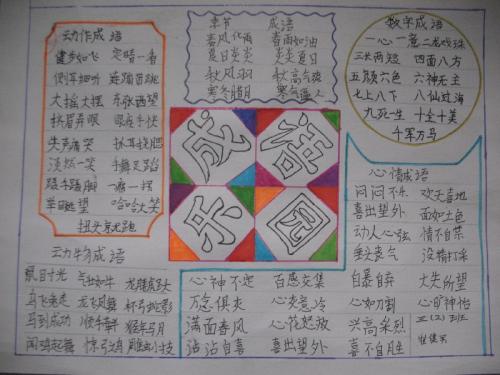 动作成语
健步如飞 定睛一看
侧耳细听 连蹦带跳
大摇大摆 东张西望
挤眉弄眼 眼疾手快
失声痛哭 抓耳挠腮
淡然一笑 手舞足蹈
蹑手蹑脚 一瘸一拐
举目眺望 哈哈大笑
扭头就跑
季节 成语
春风化雨 春雨如油
夏日炎炎 炎炎夏日
秋风 秋高气爽
寒冬腊月 寒气逼人
数字成语
一心一意 二龙戏珠
三长两短 四面八方
五颜六色 六神无主
七上八下 八仙过海
九死一生 十全十美
千军万马
成语
乐园
动物成语
鼠目寸光 气壮如牛 龙腾虎跃
马飞 龙飞凤舞 杯弓蛇影
马到成功 顺手牵羊 猴年马月
闻鸡起舞 惊弓 雕虫小技
心情成语
闷闷不乐 欢天喜地
喜出望外 面如土色
动人心弦 情不自禁
垂头丧气 没精打采
心神不定 百感交集 自暴自弃 大失所望
万念俱灰 心灰意冷 心如刀割 心旷神怡
满面春风 心花怒放 兴高采烈 三(2)班
沾沾自喜 喜出望外 喜不自胜